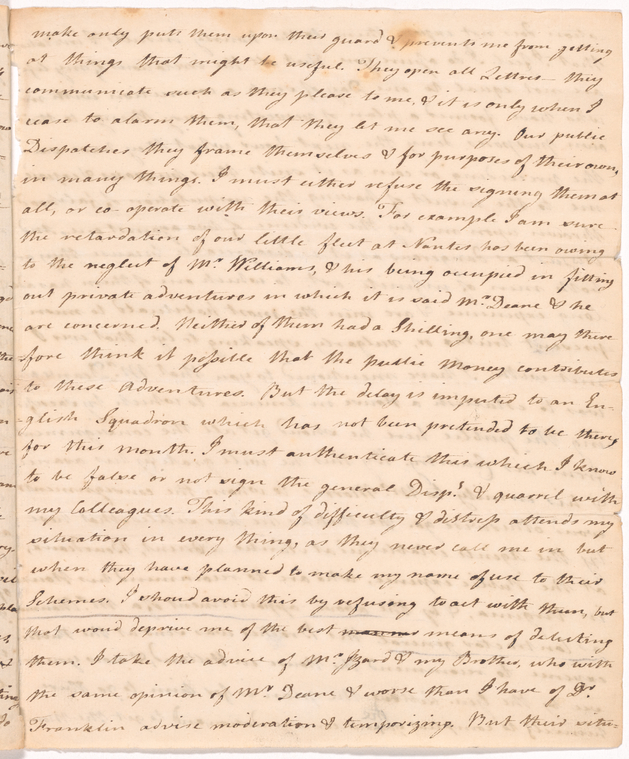 make only puts them upon their guard & prevents me from getting
at things that might be useful. They open all Letters—they
communicate such as they please to me, & it is only when I
cease to alarm them, that they let me see any. Our public
Dispatches they frame themselves & for purposes of their own,
in many things. I must either refuse the signing them at
all, or co-operate with their views. For example I am sure
the retardation of our little fleet at Nantes has been owing
to the neglect of Mr. Williams, & his being occupied in fitting
out private adventures in which it is said Mr. Deane & he
are concerned. Neither of them had a Shilling, one may there
fore think it possible that the public Money contributes
to these Adventures. But the delay is imputed to an En-
glish Squadron which has not been pretended to be there,
for this month. I must authenticate this which I know
to be false or not sign the general Disps. & quarrel with
my Colleagues. This kind of difficulty & distress attends my
situation in every thing, as they never call me in but
when they have planned to make my name of use to their
Schemes. I shoud avoid this by refusing to act with them, but
that woud deprive me of the best means of detecting
them. I take the advice of Mr. Izard & my Brother, who with
the same opinion of Mr. Deane & worse than I have of Dr.
Franklin advise moderation & temporizing. But their situ-